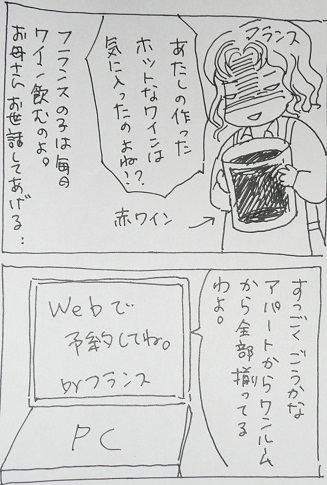 フランス
あたしの作った
ホットなワインは
気に入ったのよね!?
フランスの子は毎日
ワイン飲むのよ。
お母さんお世話してあげる…
赤ワイン
すっごくごうかな
アパートからワンルーム
から全部揃ってる
わよ。
Webで
予約してね。
byフランス
PC